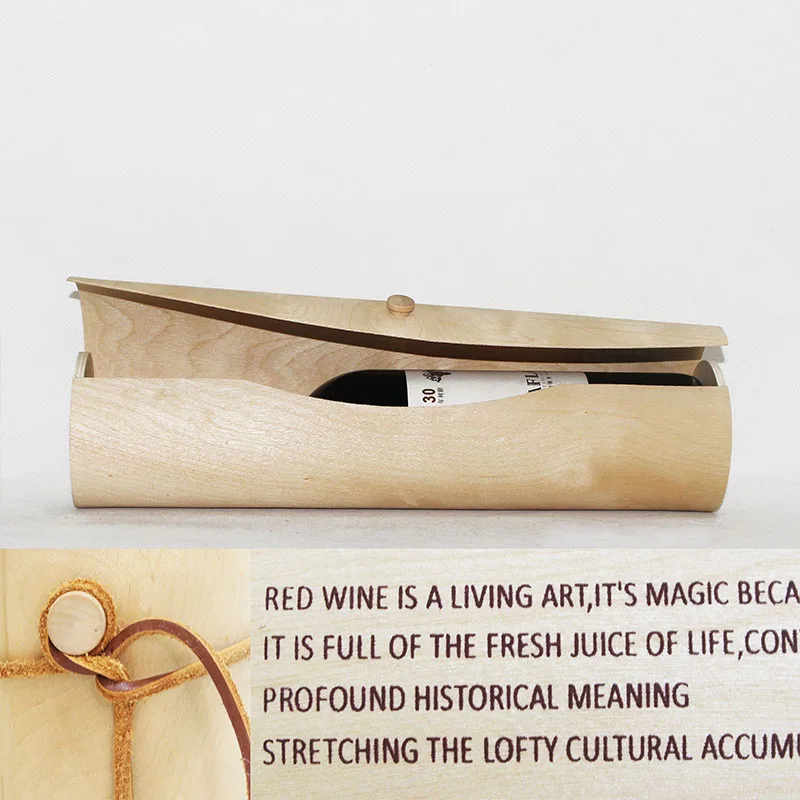 30
AFL
RED WINE IS A LIVING ART,IT'S MAGIC BECA
IT IS FULL OF THE FRESH JUICE OF LIFE,CON
PROFOUND HISTORICAL MEANING
STRETCHING THE LOFTY CULTURAL ACCUMU